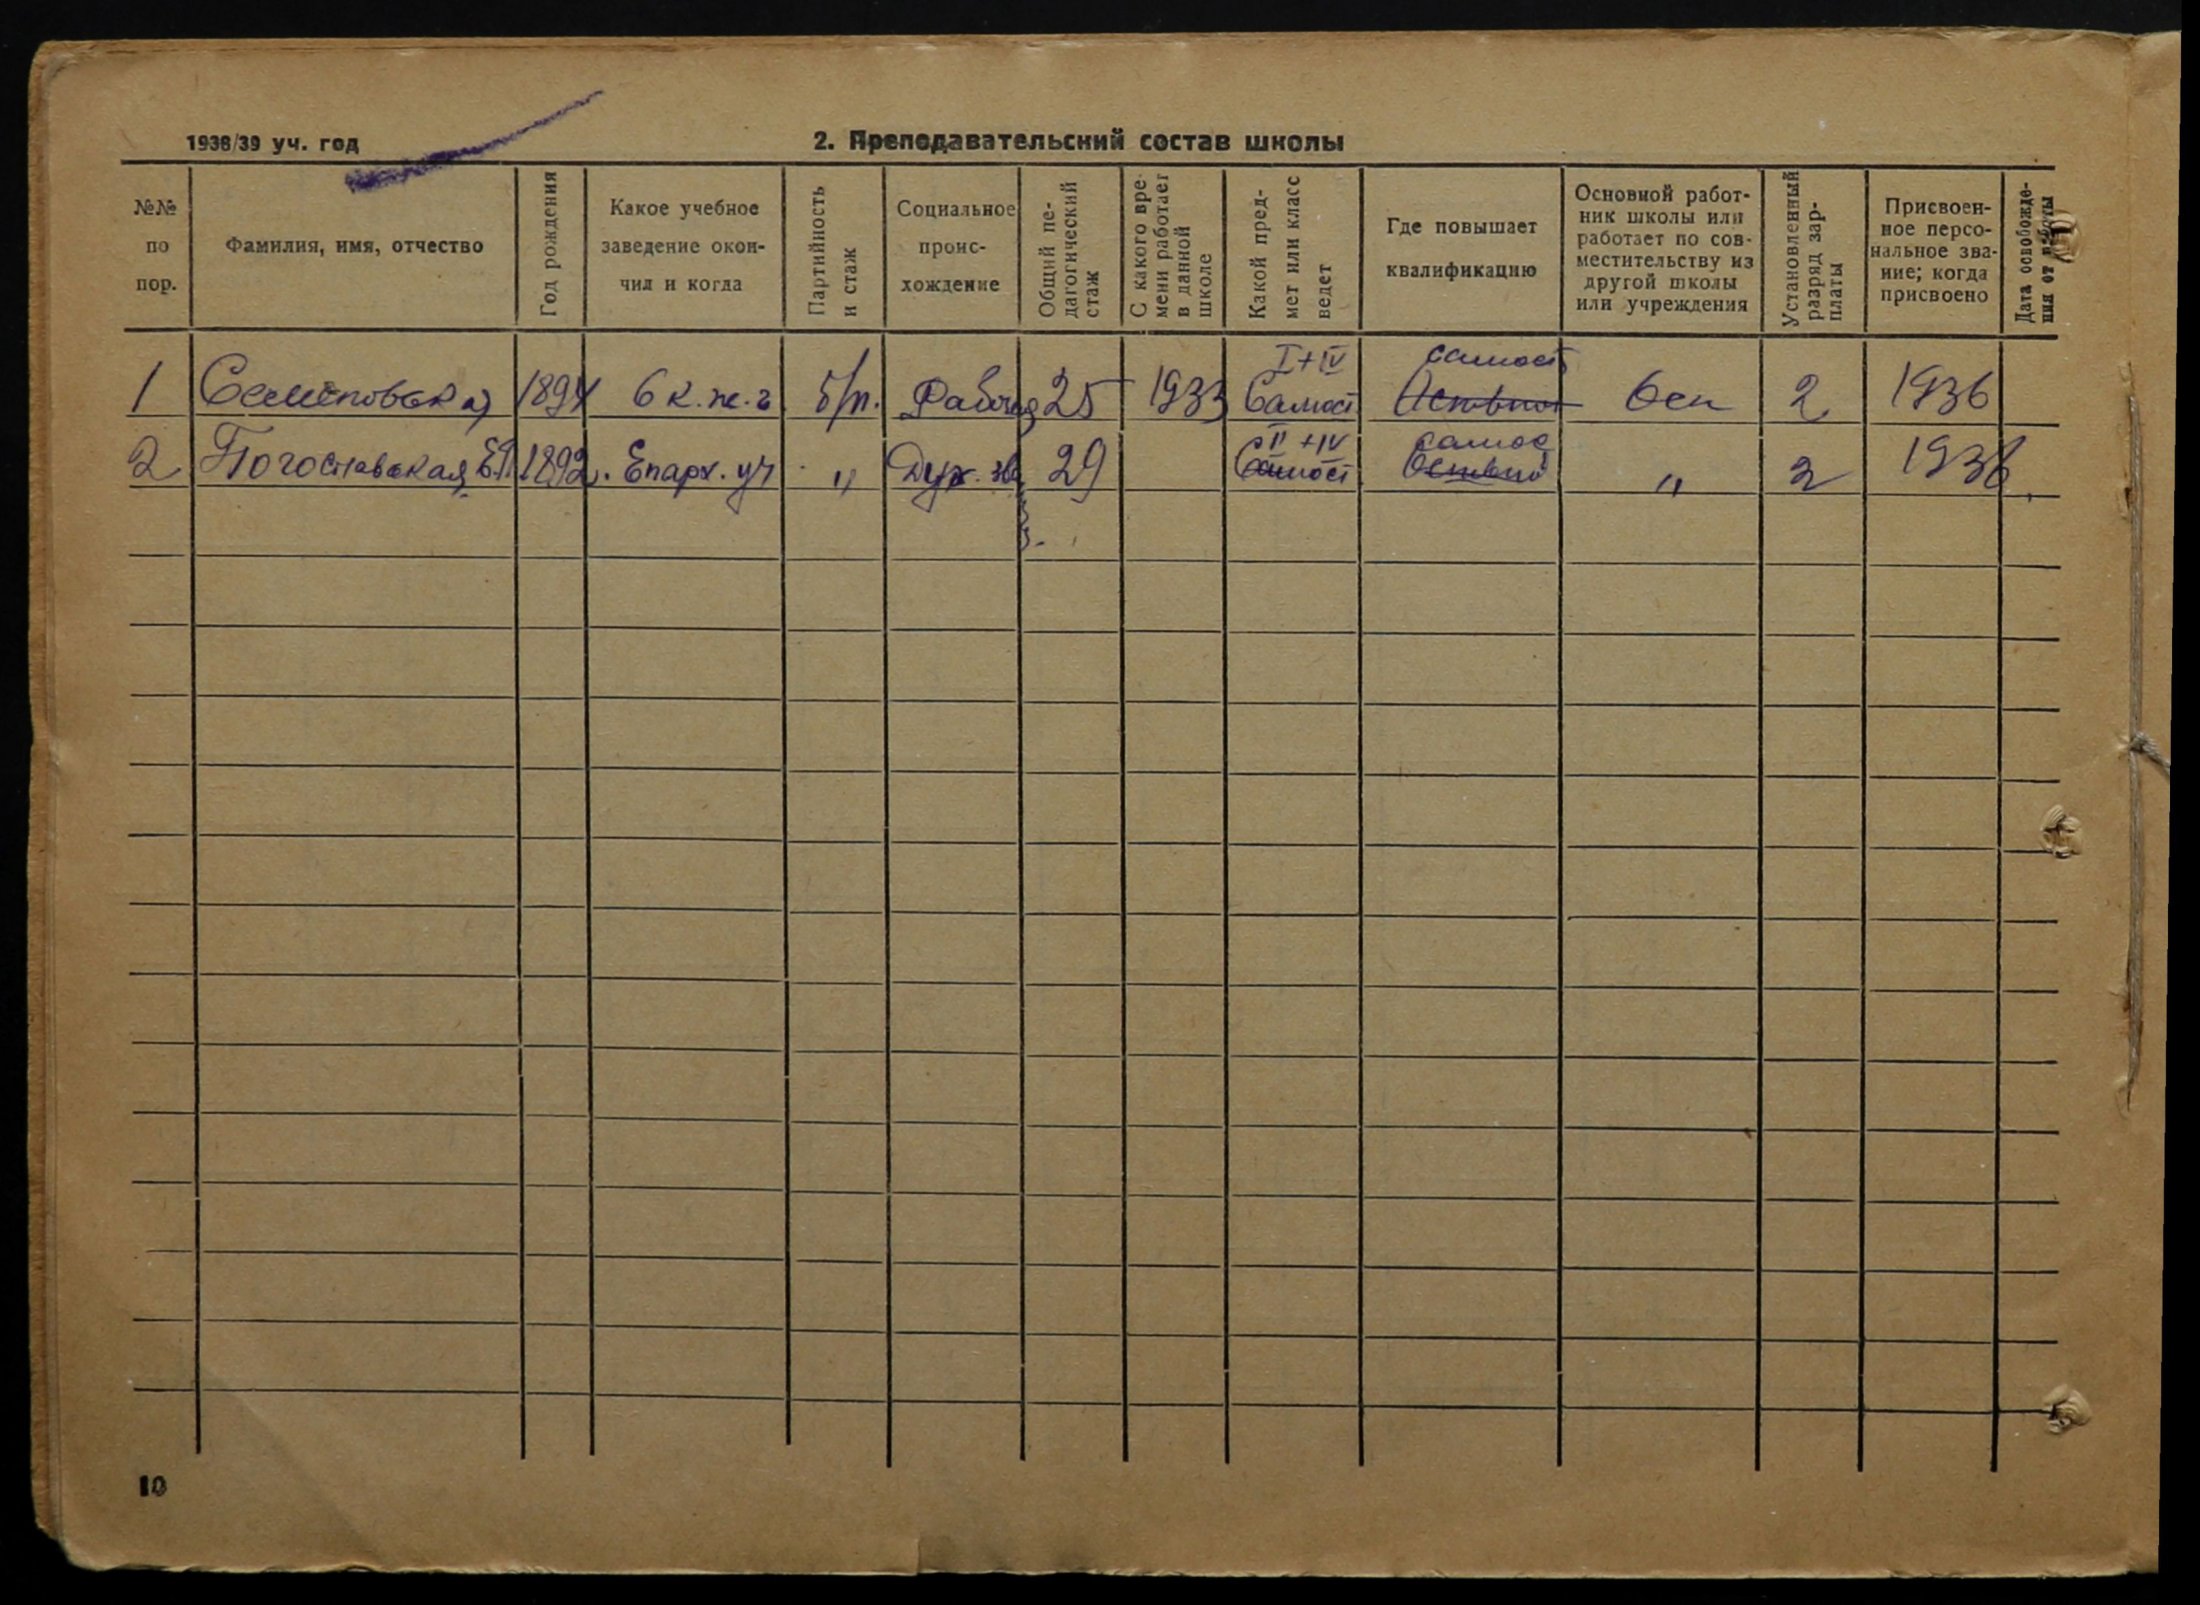 1938/39 уч. год
2. Преподавательский состав школы
№№
по
пор.
Фамилия, имя, отчество
Год рождения
Какое учебное
заведение окон-
чил и когда
Партийность
и стаж
Социальное
проис-
хождение
Общий пе-
дагогический
стаж
С какого вре-
мени работает
в данной
школе
Какой пред-
мет или класс
ведет
Где повышает
квалификацию
Основной работ-
ник школы или
работает по сов-
местительству из
другой школы
или учреждения
Установленный
разряд зар-
платы
Присвоен-
ное персо-
нальное зва-
ние; когда
присвоено
Дата освобожде-
ния от работы
I+IV самост
1 1894 6 к. ж. г б/п. 25 1933 Самост Осн 2 1936
II+IV самос
2 1892. Епарх. уч „ Дух. зв 29 Самост „ 2 1936
10